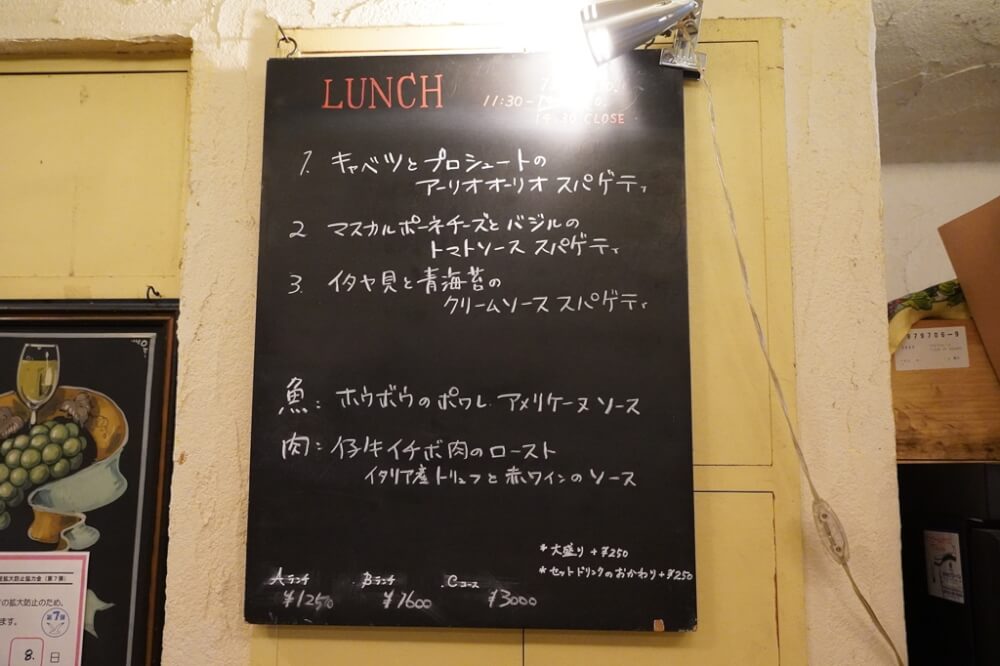 LUNCH
11:30 -
14:30 CLOSE
1. キャベツとプロシュートの
アーリオオーリオ スパゲティ
2 マスカルポーネチーズとバジルの
トマトソース スパゲティ
3. イタヤ貝と青海苔の
クリームソース スパゲティ
魚: ホウボウのポワレ アメリケーヌソース
肉: 仔牛イチボ肉のロースト
イタリア産トリュフと赤ワインのソース
* 大盛り +¥250
* セットドリンクのおかわり +¥250
Aランチ Bランチ Cコース
¥1250 ¥1600 ¥3000
979706-9
拡大防止協力金(第7弾)
の拡大防止のため、
ます。
第7弾
8. 日